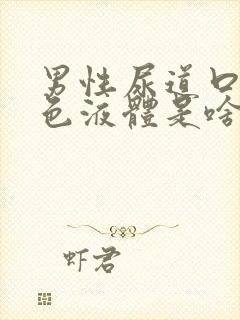 男性尿道口
色液體是啥
虾君